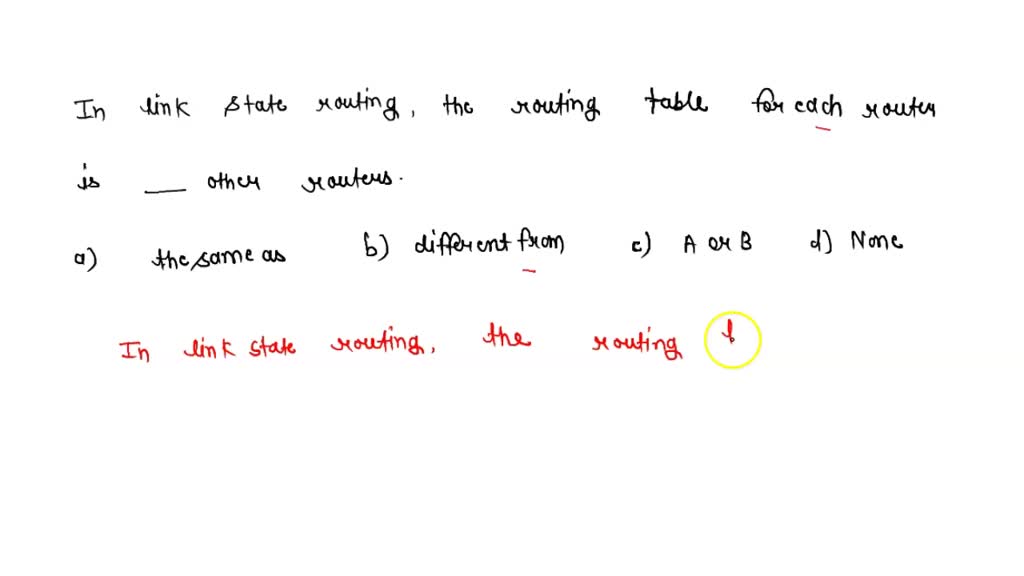 In link state routing, the routing table for each router
is ___ other routers.
a) the same as b) different from c) A or B d) None
In link state routing, the routing t